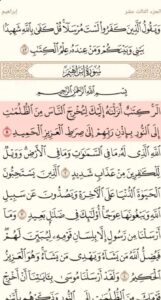 الجزء الثالث عشر إبراهيم
وَيَقُولُ ٱلَّذِينَ كَفَرُواْ لَسْتَ مُرْسَلًا قُلْ كَفَىٰ بِٱللَّهِ شَهِيدًۢا
بَيْنِي وَبَيْنَكُمْ وَمَنْ عِندَهُۥ عِلْمُ ٱلْكِتَٰبِ ٤٣
سُورَةُ إِبْرَاهِيمَ
بِسْمِ ٱللَّهِ ٱلرَّحْمَٰنِ ٱلرَّحِيمِ
الٓر كِتَٰبٌ أَنزَلْنَٰهُ إِلَيْكَ لِتُخْرِجَ ٱلنَّاسَ مِنَ ٱلظُّلُمَٰتِ
إِلَى ٱلنُّورِ بِإِذْنِ رَبِّهِمْ إِلَىٰ صِرَٰطِ ٱلْعَزِيزِ ٱلْحَمِيدِ ١
ٱللَّهِ ٱلَّذِي لَهُۥ مَا فِي ٱلسَّمَٰوَٰتِ وَمَا فِي ٱلْأَرْضِ وَوَيْلٌ
لِّلْكَٰفِرِينَ مِنْ عَذَابٍ شَدِيدٍ ٢ ٱلَّذِينَ يَسْتَحِبُّونَ
ٱلْحَيَوٰةَ ٱلدُّنْيَا عَلَى ٱلْأٓخِرَةِ وَيَصُدُّونَ عَن سَبِيلِ
ٱللَّهِ وَيَبْغُونَهَا عِوَجًا أُوْلَٰٓئِكَ فِي ضَلَٰلٍۭ بَعِيدٍ ٣ وَمَآ
أَرْسَلْنَا مِن رَّسُولٍ إِلَّا بِلِسَانِ قَوْمِهِۦ لِيُبَيِّنَ لَهُمْ فَيُضِلُّ
ٱللَّهُ مَن يَشَآءُ وَيَهْدِي مَن يَشَآءُ وَهُوَ ٱلْعَزِيزُ
ٱلْحَكِيمُ ٤ وَلَقَدْ أَرْسَلْنَا مُوسَىٰ بِـَٔايَٰتِنَآ أَنْ أَخْرِجْ